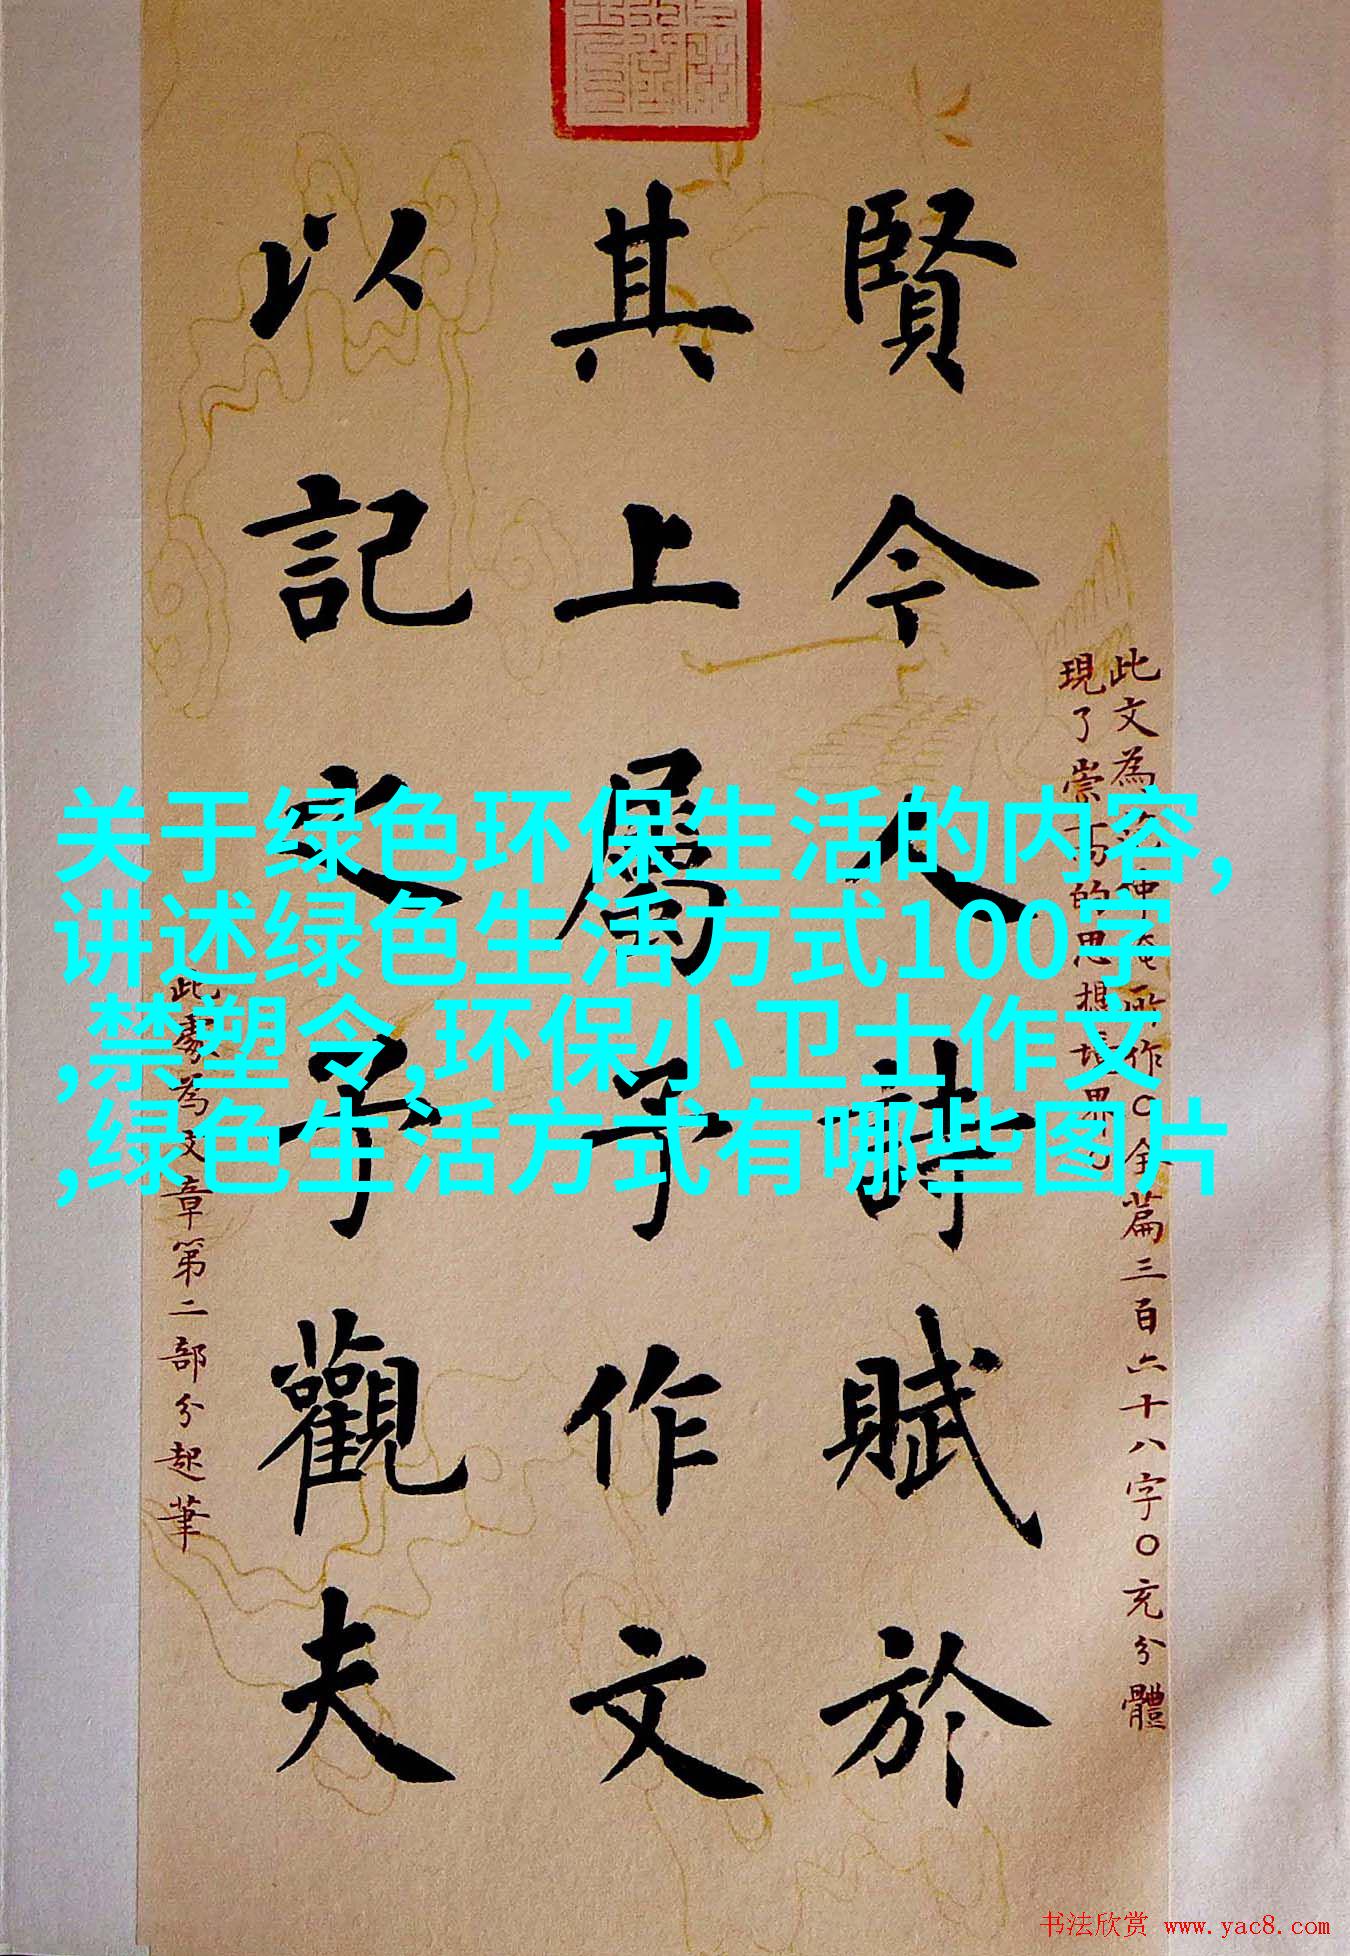 賢今人詩賦於
其上屬予作文
以記之予觀夫
关于绿色环保生活的内容,
讲述绿色生活方式100字
,禁塑令,环保小卫士作文
,绿色生活方式有哪些图片
此文為范仲淹所作〇全篇三百六十八字〇充分體
現了崇高的思想境界
此處為文章第二部分起筆
书法欣赏 www.yac8.com